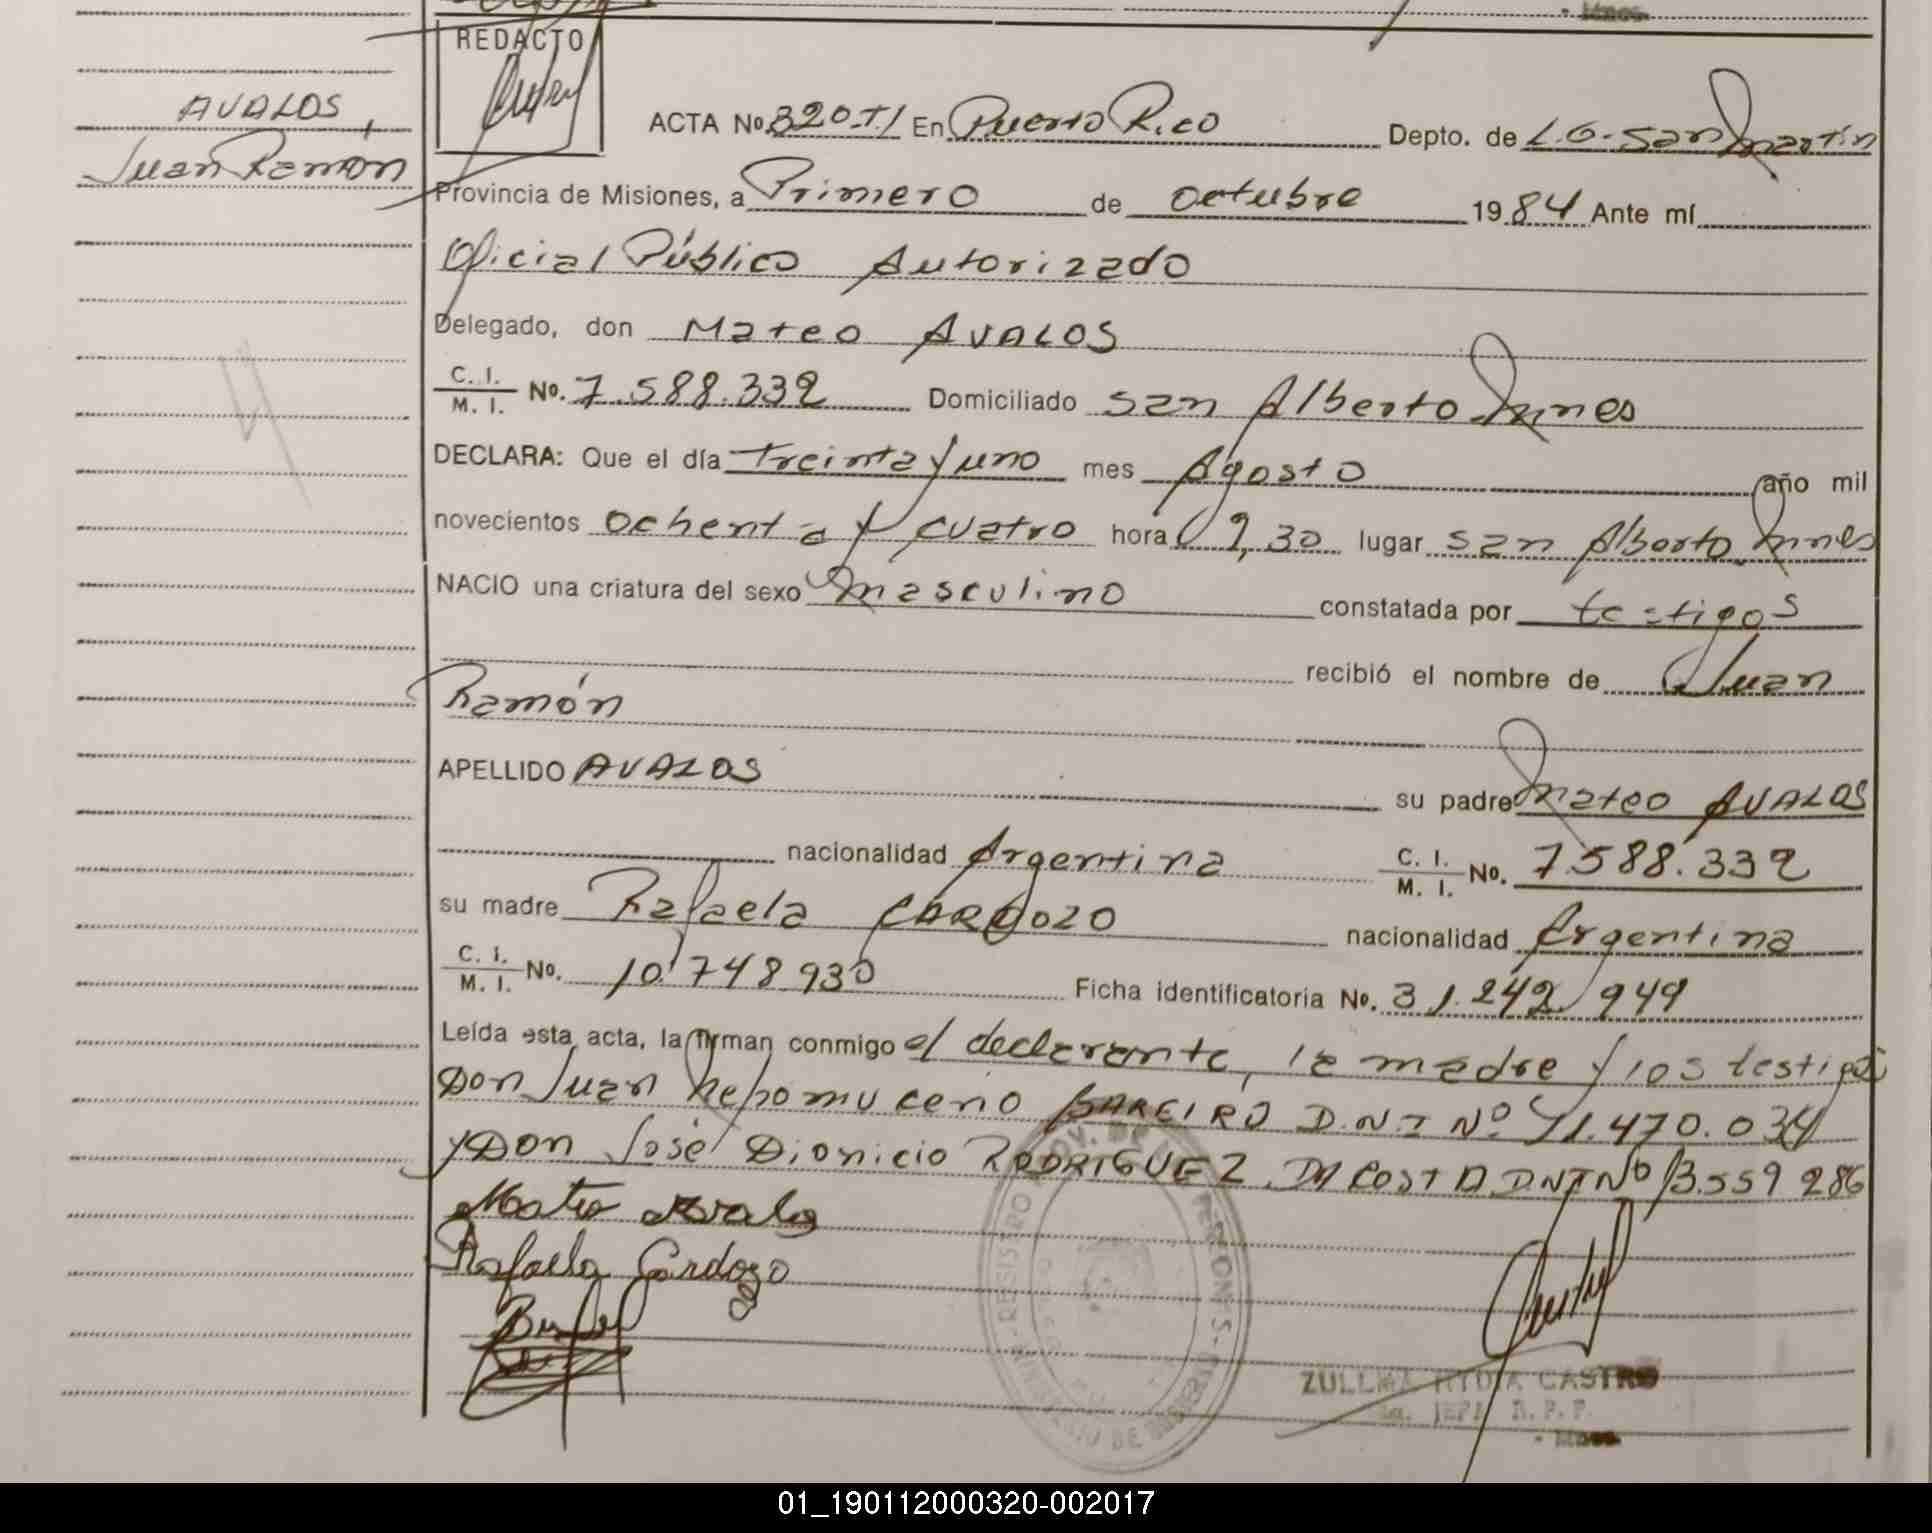 REDACTO
AVALOS,
Juan Ramón
ACTA No. 320 T.I En Puerto Rico Depto. de L.G. San Martín
Provincia de Misiones, a Primero de octubre 1984 Ante mí
Oficial Público Autorizado
Delegado, don Mateo AVALOS
C. I. / M. I. No. 7.588.332 Domiciliado San Alberto Mnes
DECLARA: Que el día treinta y uno mes Agosto año mil
novecientos ochenta y cuatro hora 9,30 lugar San Alberto Mnes
NACIO una criatura del sexo masculino constatada por testigos
recibió el nombre de Juan
Ramón
APELLIDO AVALOS su padre Mateo AVALOS
nacionalidad Argentina C. I. / M. I. No. 7.588.332
su madre Rafaela CARDOZO nacionalidad Argentina
C. I. / M. I. No. 10.748.930 Ficha identificatoria No. 31.242.949
Leída esta acta, la firman conmigo el declarante, la madre y los testigos
Don Juan Nepomuceno BAREIRO D.N.I Nº 11.470.034
y Don José Dionicio RODRIGUEZ DA COSTA D.N.I Nº 13.559.286
Mateo Avalos
Rafaela Cardozo
ZULLMA NYDIA CASTRO
JEFA R. P. P.
Mnes.
01_190112000320-002017